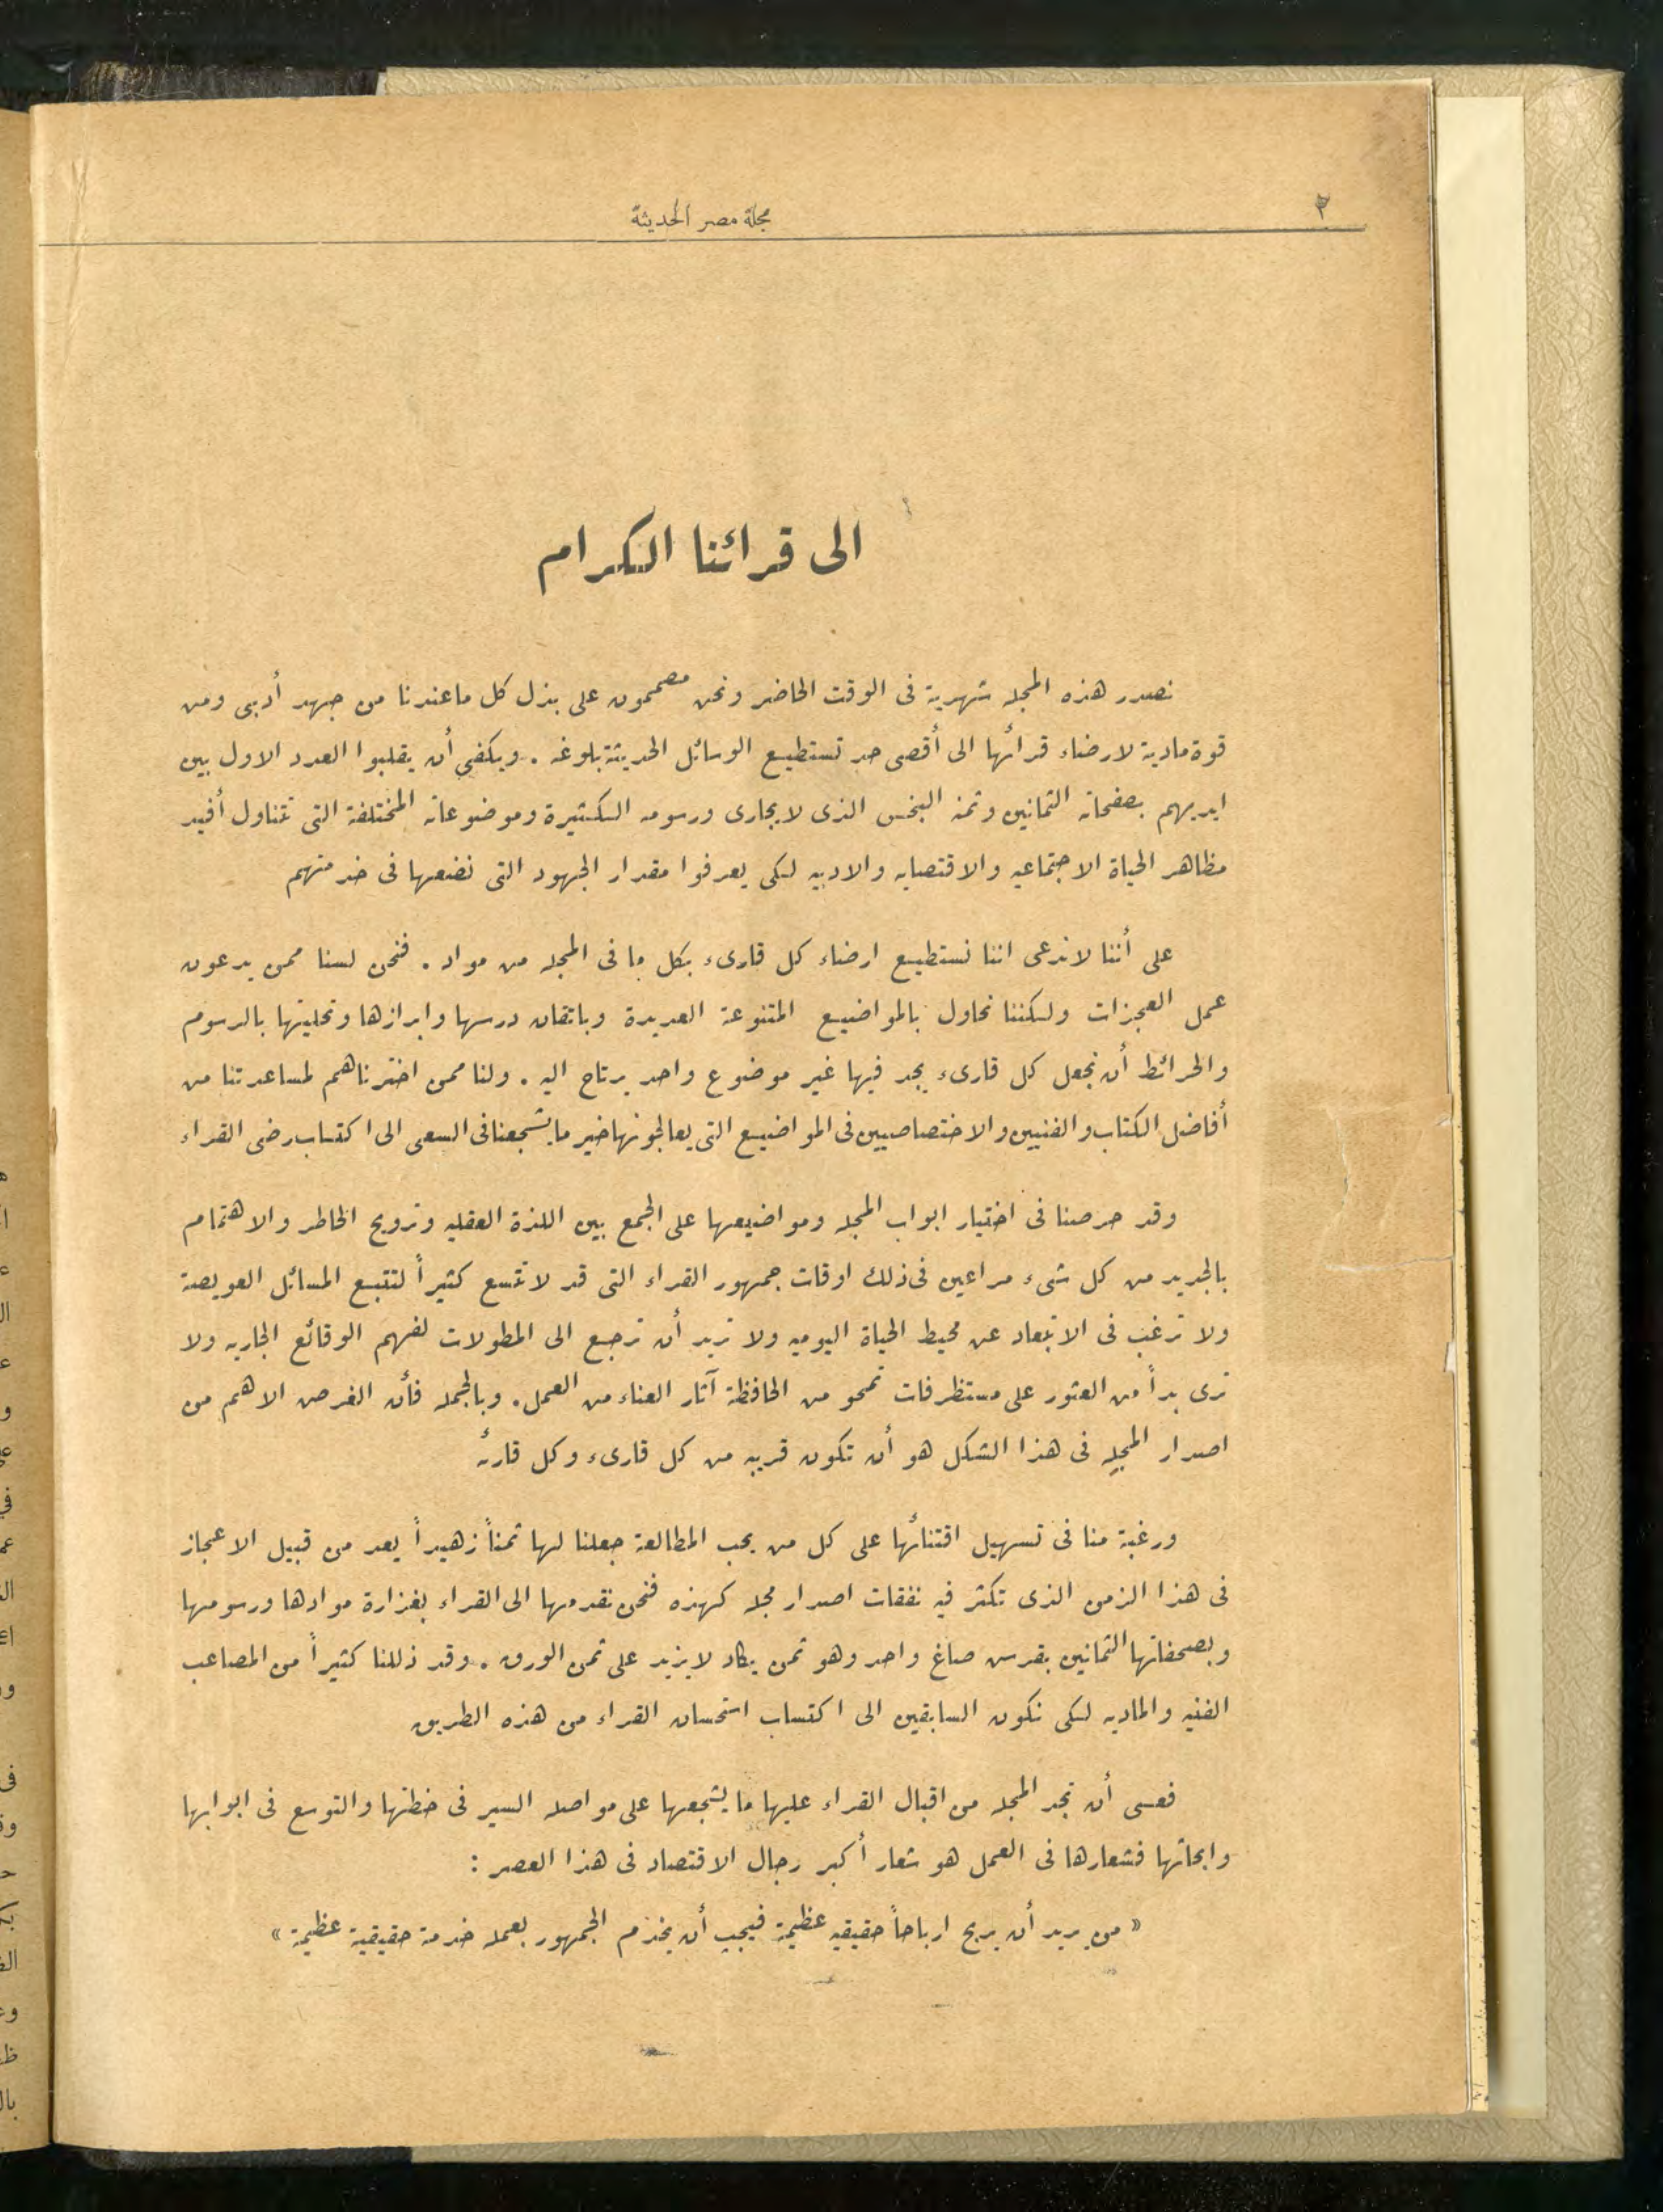 ٣
مجلة مصر الحديثة
الى قرائنا الكرام
نصدر هذه المجلة شهرية فى الوقت الحاضر ونحن مصممون على بذل كل ما عندنا من جهد أدبى ومن
قوة مادية لارضاء قرائها الى أقصى حد تستطيع الوسائل الحديثة بلوغه . ويكفى أن يقلبوا العدد الاول بين
ايديهم بصفحاته الثمانين وثمنه البخس الذى لا يجارى ورسومه الكثيرة وموضوعاته المختلفة التى تتناول أفيد
مظاهر الحياة الاجتماعيه والاقتصايه والادبيه لكى يعرفوا مقدار الجهود التى نضعها فى خدمتهم
على أننا لا ندعى اننا نستطيع ارضاء كل قارىء بكل ما فى المجله من مواد . فنحن لسنا ممن يدعون
عمل المعجزات ولكننا نحاول بالمواضيع المتنوعة العديدة وباتقان درسها وابرازها وتحليتها بالرسوم
والخرائط أن نجعل كل قارىء يجد فيها غير موضوع واحد يرتاح اليه . ولنا ممن اخترناهم لمساعدتنا من
أفاضل الكتاب والفنيين والاختصاصيين فى المواضيع التى يعالجونها خير ما يشجعنا فى السعى الى اكتساب رضى القراء
وقد حرصنا فى اختيار ابواب المجله ومواضيعها على الجمع بين اللذة العقليه وترويح الخاطر والاهتمام
بالجديد من كل شىء مراعين فى ذلك اوقات جمهور القراء التى قد لا تتسع كثيراً لتتبع المسائل العويصة
ولا ترغب فى الابتعاد عن محيط الحياة اليوميه ولا تريد أن ترجع الى المطولات لفهم الوقائع الجاريه ولا
ترى بداً من العثور على مستظرفات تمحو من الحافظة آثار العناء من العمل . وبالجمله فأن الغرض الاهم من
اصدار المجله فى هذا الشكل هو أن تكون قريبه من كل قارىء وكل قارئه
ورغبة منا فى تسهيل اقتنائها على كل من يحب المطالعة جعلنا لها ثمناً زهيداً يعد من قبيل الاعجاز
فى هذا الزمن الذى تكثر فيه نفقات اصدار مجله كهذه فنحن نقدمها الى القراء بغزارة موادها ورسومها
وبصحفاتها الثمانين بقرش صاغ واحد وهو ثمن يكاد لا يزيد على ثمن الورق . وقد ذللنا كثيراً من المصاعب
الفنيه والماديه لكى نكون السابقين الى اكتساب استحسان القراء من هذه الطريق
فعسى أن تجد المجله من اقبال القراء عليها ما يشجعها على مواصله السير فى خطتها والتوسع فى ابوابها
وابحاثها فشعارها فى العمل هو شعار أكبر رجال الاقتصاد فى هذا العصر :
« من يريد أن يربح ارباحاً حقيقيه عظيمة فيجب أن يخدم الجمهور بعمله خدمة حقيقية عظيمة »